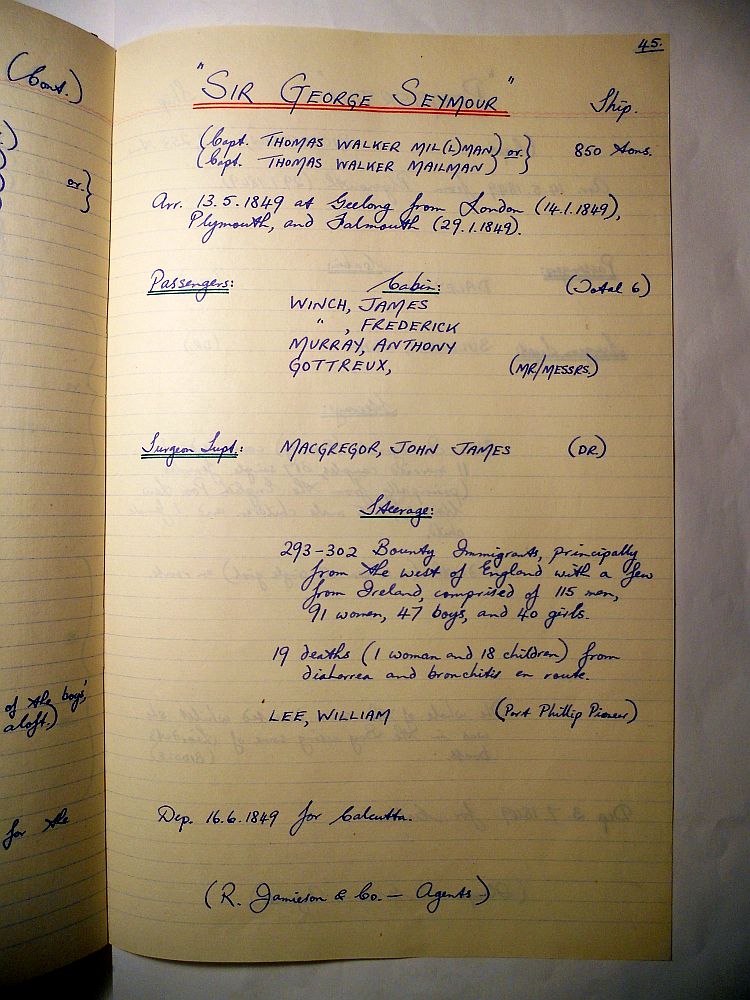 45.
(Cont.)
"SIR GEORGE SEYMOUR" Ship.
(Capt. THOMAS WALKER MIL(L)MAN) or } 850 Tons.
(Capt. THOMAS WALKER MAILMAN)
or }
Arr. 13.5.1849 at Geelong from London (14.1.1849),
Plymouth, and Falmouth (29.1.1849).
Passengers: Cabin: (Total 6)
WINCH, JAMES
" , FREDERICK
MURRAY, ANTHONY
GOTTREUX, (MR/MESSRS.)
Surgeon Supt.: MACGREGOR, JOHN JAMES (DR.)
Steerage:
293-302 Bounty Immigrants, principally
from the west of England with a few
from Ireland, comprised of 115 men,
91 women, 47 boys, and 40 girls.
19 deaths (1 woman and 18 children) from
diaharrea and bronchitis en route.
of the boys'
aloft.)
LEE, WILLIAM (Port Phillip Pioneer)
for the
Dep. 16.6.1849 for Calcutta.
(R. Jamieson & Co. — Agents)